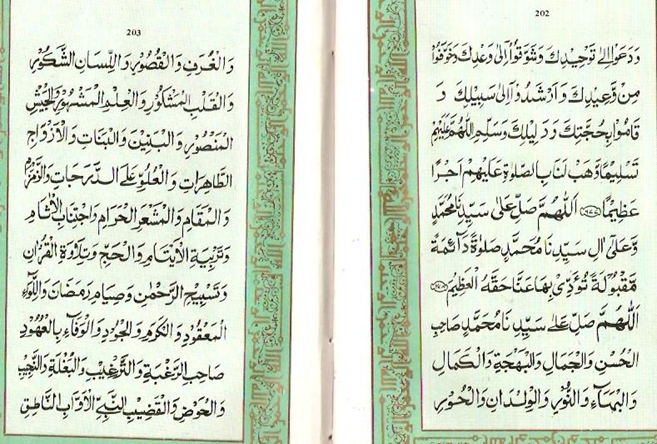 202
وَدَعَوْا اِلٰى تَوْحِيْدِكَ وَشَوَّقُوْا اِلٰى وَعْدِكَ وَخَوَّفُوْا
مِنْ وَّعِيْدِكَ وَاَرْشَدُوْا اِلٰى سَبِيْلِكَ وَ
قَامُوْا بِحُجَّتِكَ وَدَلِيْلِكَ وَسَلِّمِ اللّٰهُمَّ عَلَيْهِمْ
تَسْلِيْمًا وَّهَبْ لَنَا بِالصَّلٰوةِ عَلَيْهِمْ اَجْرًا
عَظِيْمًا اَللّٰهُمَّ صَلِّ عَلٰى سَيِّدِنَا مُحَمَّدٍ
وَّعَلٰى اٰلِ سَيِّدِنَا مُحَمَّدٍ صَلٰوةً دَآئِمَةً
مَّقْبُوْلَةً تُؤَدِّىْ بِهَا عَنَّا حَقَّهُ الْعَظِيْمَ
اَللّٰهُمَّ صَلِّ عَلٰى سَيِّدِنَا مُحَمَّدٍ صَاحِبِ
الْحُسْنِ وَالْجَمَالِ وَالْبَهْجَةِ وَالْكَمَالِ
وَالْبَهَآءِ وَالنُّوْرِ وَالْوِلْدَانِ وَالْحُوْرِ
203
وَالْغُرَفِ وَالْقُصُوْرِ وَاللِّسَانِ الشَّكُوْرِ
وَالْقَلْبِ الْمَشْكُوْرِ وَالْعِلْمِ الْمَشْهُوْرِ وَالْجَيْشِ
الْمَنْصُوْرِ وَالْبَنِيْنَ وَالْبَنَاتِ وَالْاَزْوَاجِ
الطَّاهِرَاتِ وَالْعُلُوِّ عَلَى الدَّرَجَاتِ وَالزَّمْزَمِ
وَالْمَقَامِ وَالْمَشْعَرِ الْحَرَامِ وَاجْتِنَابِ الْاٰثَامِ
وَتَرْبِيَةِ الْاَيْتَامِ وَالْحَجِّ وَتِلَاوَةِ الْقُرْاٰنِ
وَتَسْبِيْحِ الرَّحْمٰنِ وَصِيَامِ رَمَضَانَ وَاللِّوَآءِ
الْمَعْقُوْدِ وَالْكَرَمِ وَالْجُوْدِ وَالْوَفَآءِ بِالْعُهُوْدِ
صَاحِبِ الرَّغْبَةِ وَالتَّرْغِيْبِ وَالْبَغْلَةِ وَالنَّجِيْبِ
وَالْحَوْضِ وَالْقَضِيْبِ النَّبِيِّ الْاَوَّابِ النَّاطِقِ